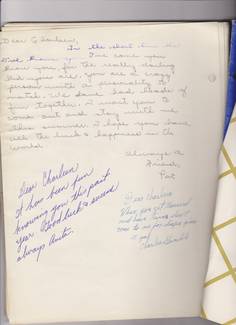 Dear Charleen,
In the short time
I've come you
know you for the really darling
kid you are. You are a crazy
person with a personality to
match. We have had loads of
fun together. I want you to
come out and stay with me
this summer. I hope you have
all the luck & happiness in the
world.
Always a
Friend,
Pat
Dear Charleen
It has been fun
knowing you the past
year. Good luck &
always Anita.
Dear Charleen
When you get married
and have twins don't
come to me for